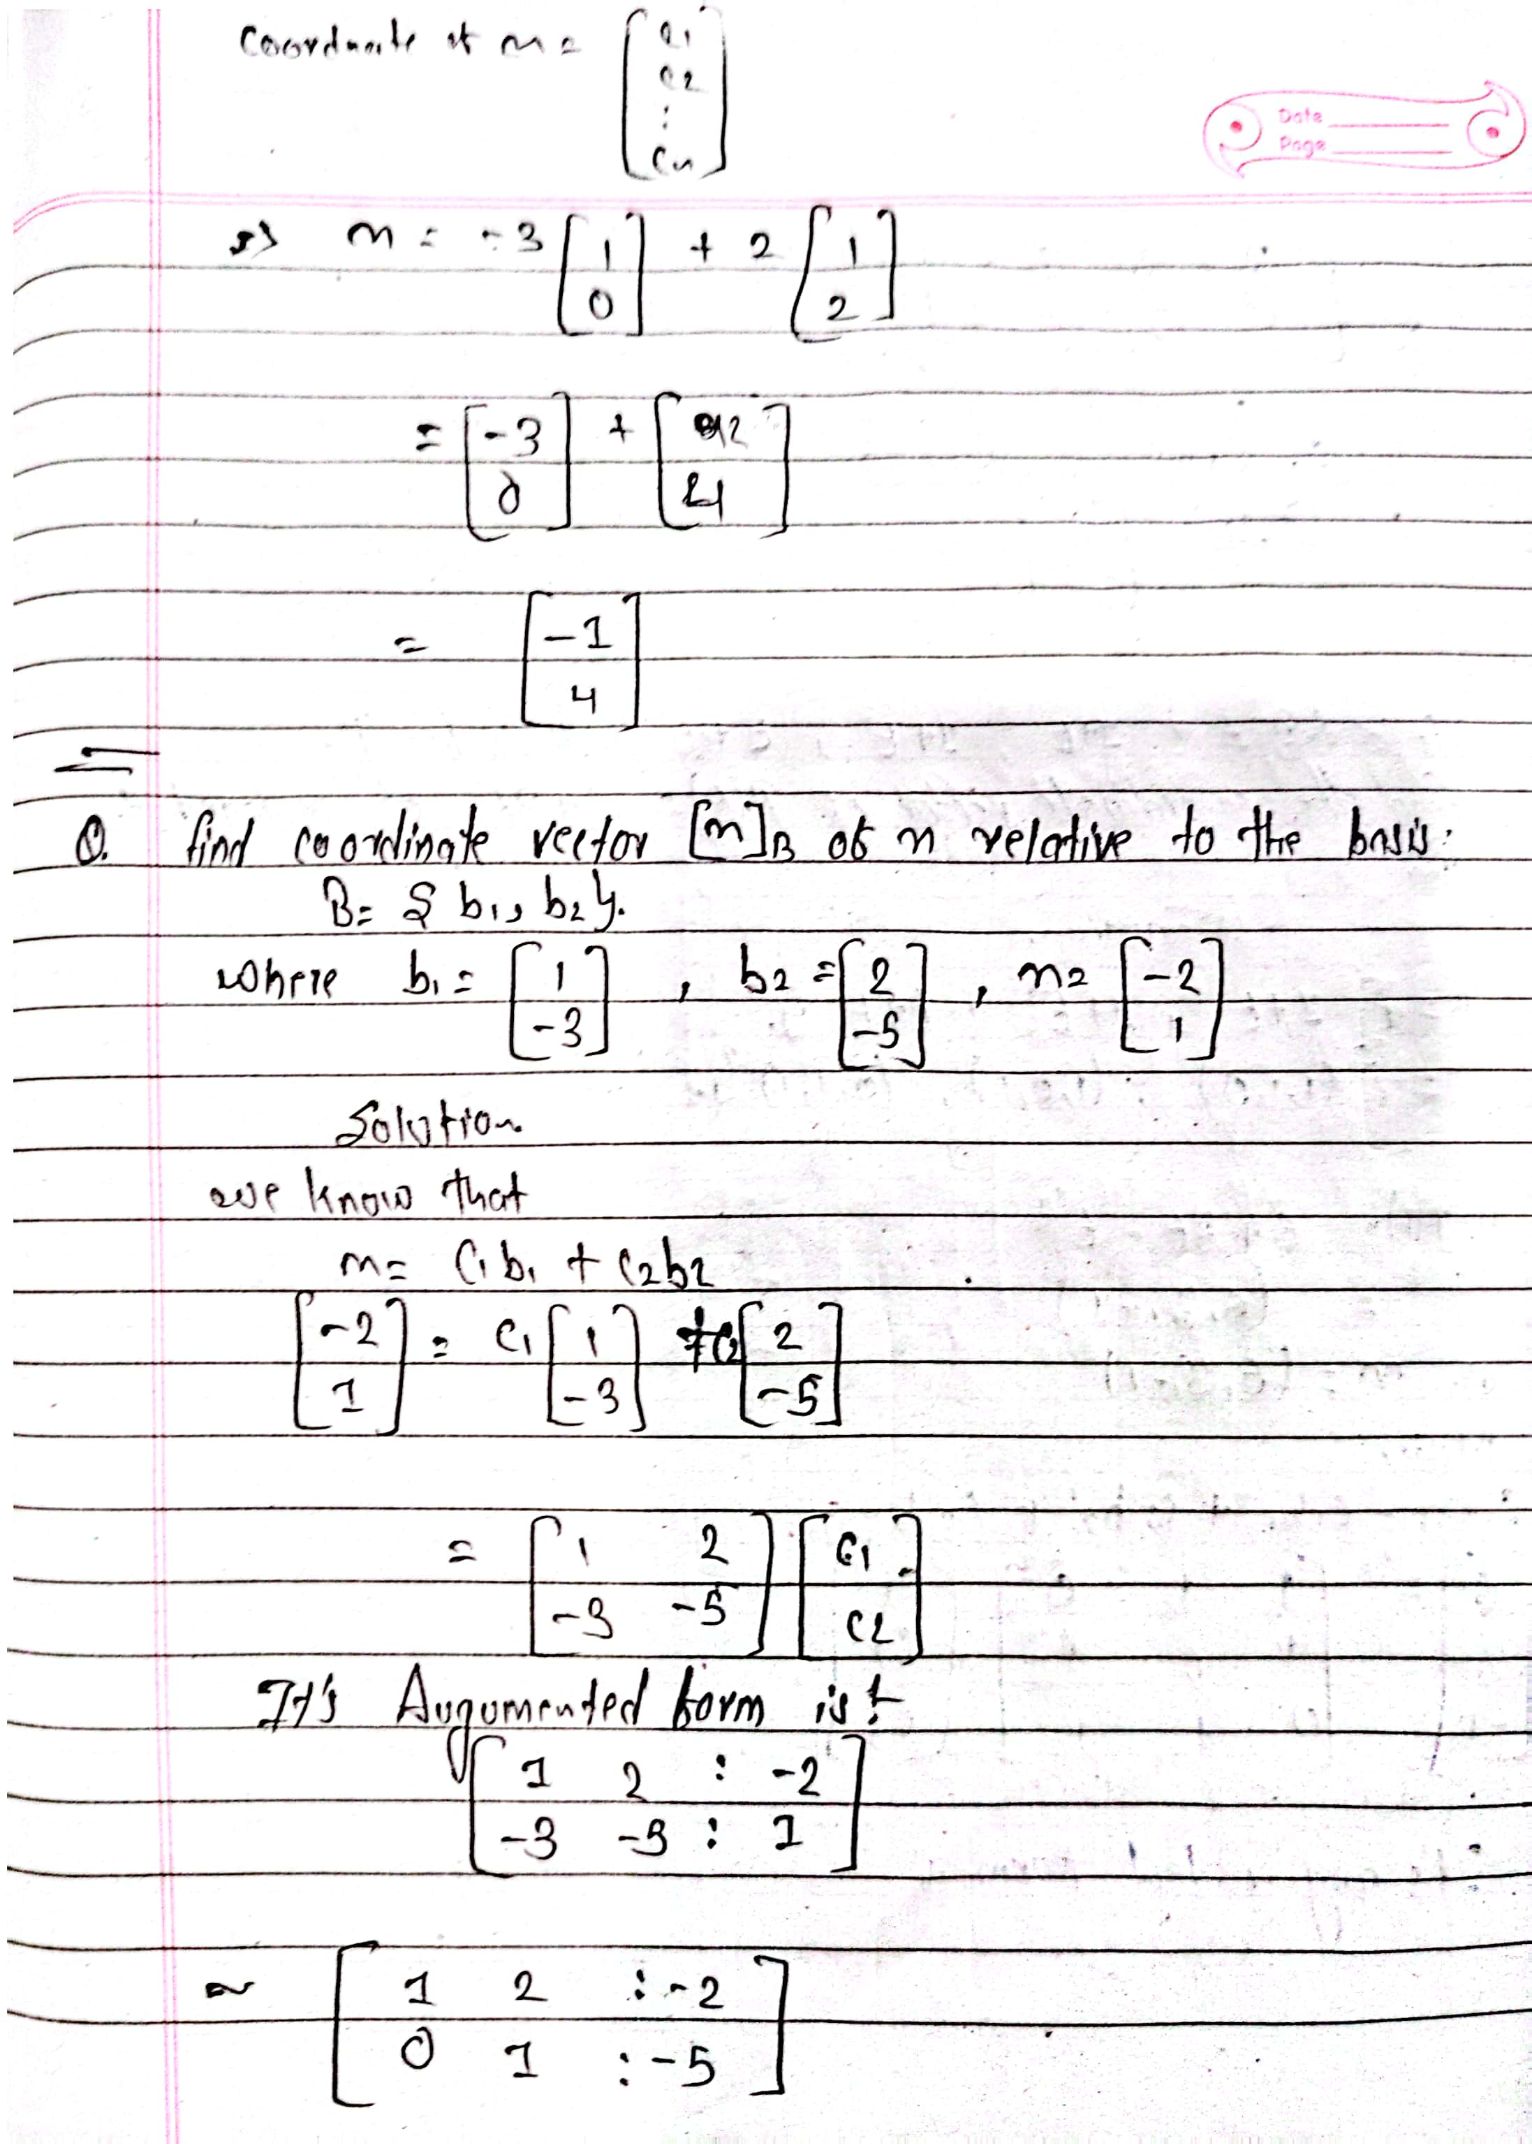 Coordnate of n = [c1 c2 : cn]
Date
Page
=> n = -3 [1 0] + 2 [1 2]
= [-3 0] + [2 4]
= [-1 4]
Q. find coordinate vector [n]B of n relative to the basis:
B = { b1, b2 }.
where b1 = [1 -3] , b2 = [2 -5] , n = [-2 1]
Solution
we know that
n = c1 b1 + c2 b2
[-2 1] = c1 [1 -3] + c2 [2 -5]
= [1 2 -3 -5] [c1 c2]
It's Augumented form is:
[1 2 : -2
-3 -5 : 1]
~ [1 2 : -2
0 1 : -5]